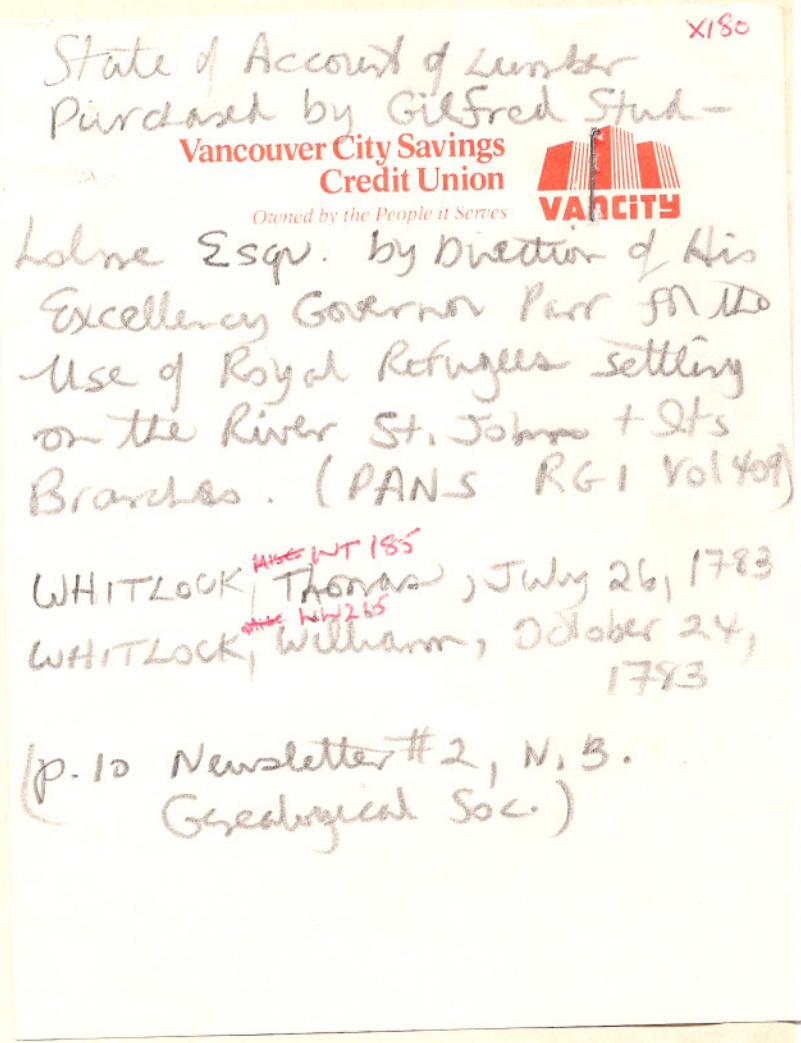 X180
State of Account of Lumber
Purchased by Gilfred Stud-
Vancouver City Savings
Credit Union
Owned by the People it Serves
VANCITY
holme Esqr. by Direction of His
Excellency Governor Parr for the
Use of Royal Refugees settling
on the River St. Johns + Its
Branches. (PANS RG1 Vol 409)
MISC WT 185
WHITLOCK, Thomas, July 26, 1783
MISC WW265
WHITLOCK, William, October 24,
1783
(p. 10 Newsletter #2, N.B.
Genealogical Soc.)